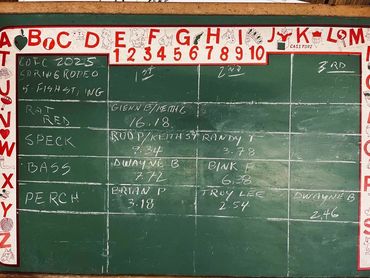 A B C D E F G H I J K L M
1 2 3 4 5 6 7 8 9 10
CDFC 2025
SPRING RODEO
5 FISH STRING
1ST 2ND 3RD
RAT RED
GLENN B/KEITH G
16.18
SPECK
ROD P/KEITH S RANDY T
7.34 3.78
BASS
DWAYNE B BINK F
7.72 6.38
PERCH
BRIAN P TROY LEE DWAYNE B
3.18 2.54 2.46
T
U
V
W
X
Y
Z